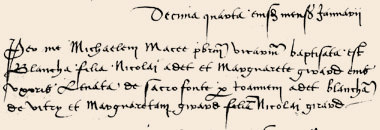 Decima quarta eiusd mensis Januarii
Per me Michaelem Macee pbrm vicarium baptisata est
Blancha filia Nicolai adet et Margarete girard eius
uxoris Levata de sacro fonte p Joannem adet blanchā
de vitry et Margaretam girard filiā Nicolai girard